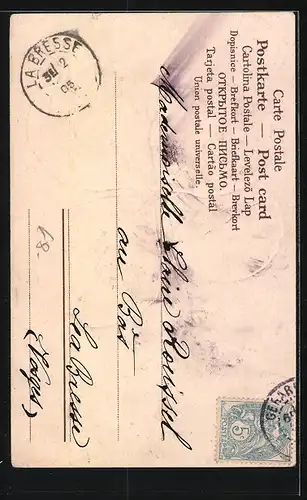 Carte Postale
Postkarte — Post card
Cartolina Postale — Levelező Lap
Dopisnice — Brefkort — Briefkaart — Brevkort
ОТКРЫТОЕ ПИСЬМО.
Tarjeta postal — Cartão postal
Union postale universelle.
Mademoiselle
au Bas
La Bresse
(Vosges)
LA BRESSE
5
68-